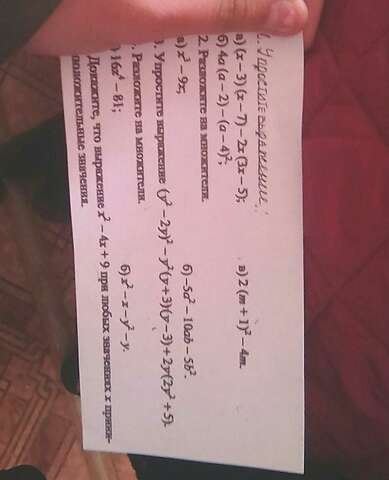 1. Упростите выражение:
а) (x − 3)(x − 7) − 2x (3x − 5);
б) 4a (a − 2) − (a − 4)²; в) 2 (m + 1)² − 4m.
2. Разложите на множители.
а) x³ − 9x; б) −5a² − 10ab − 5b².
3. Упростите выражение (y² − 2y)² − y²(y + 3)(y − 3) + 2y(2y² + 5).
. Разложите на множители.
) 16x⁴ − 81; б) x² − x − y² − y.
Докажите, что выражение x² − 4x + 9 при любых значениях x прини-
положительные значения.